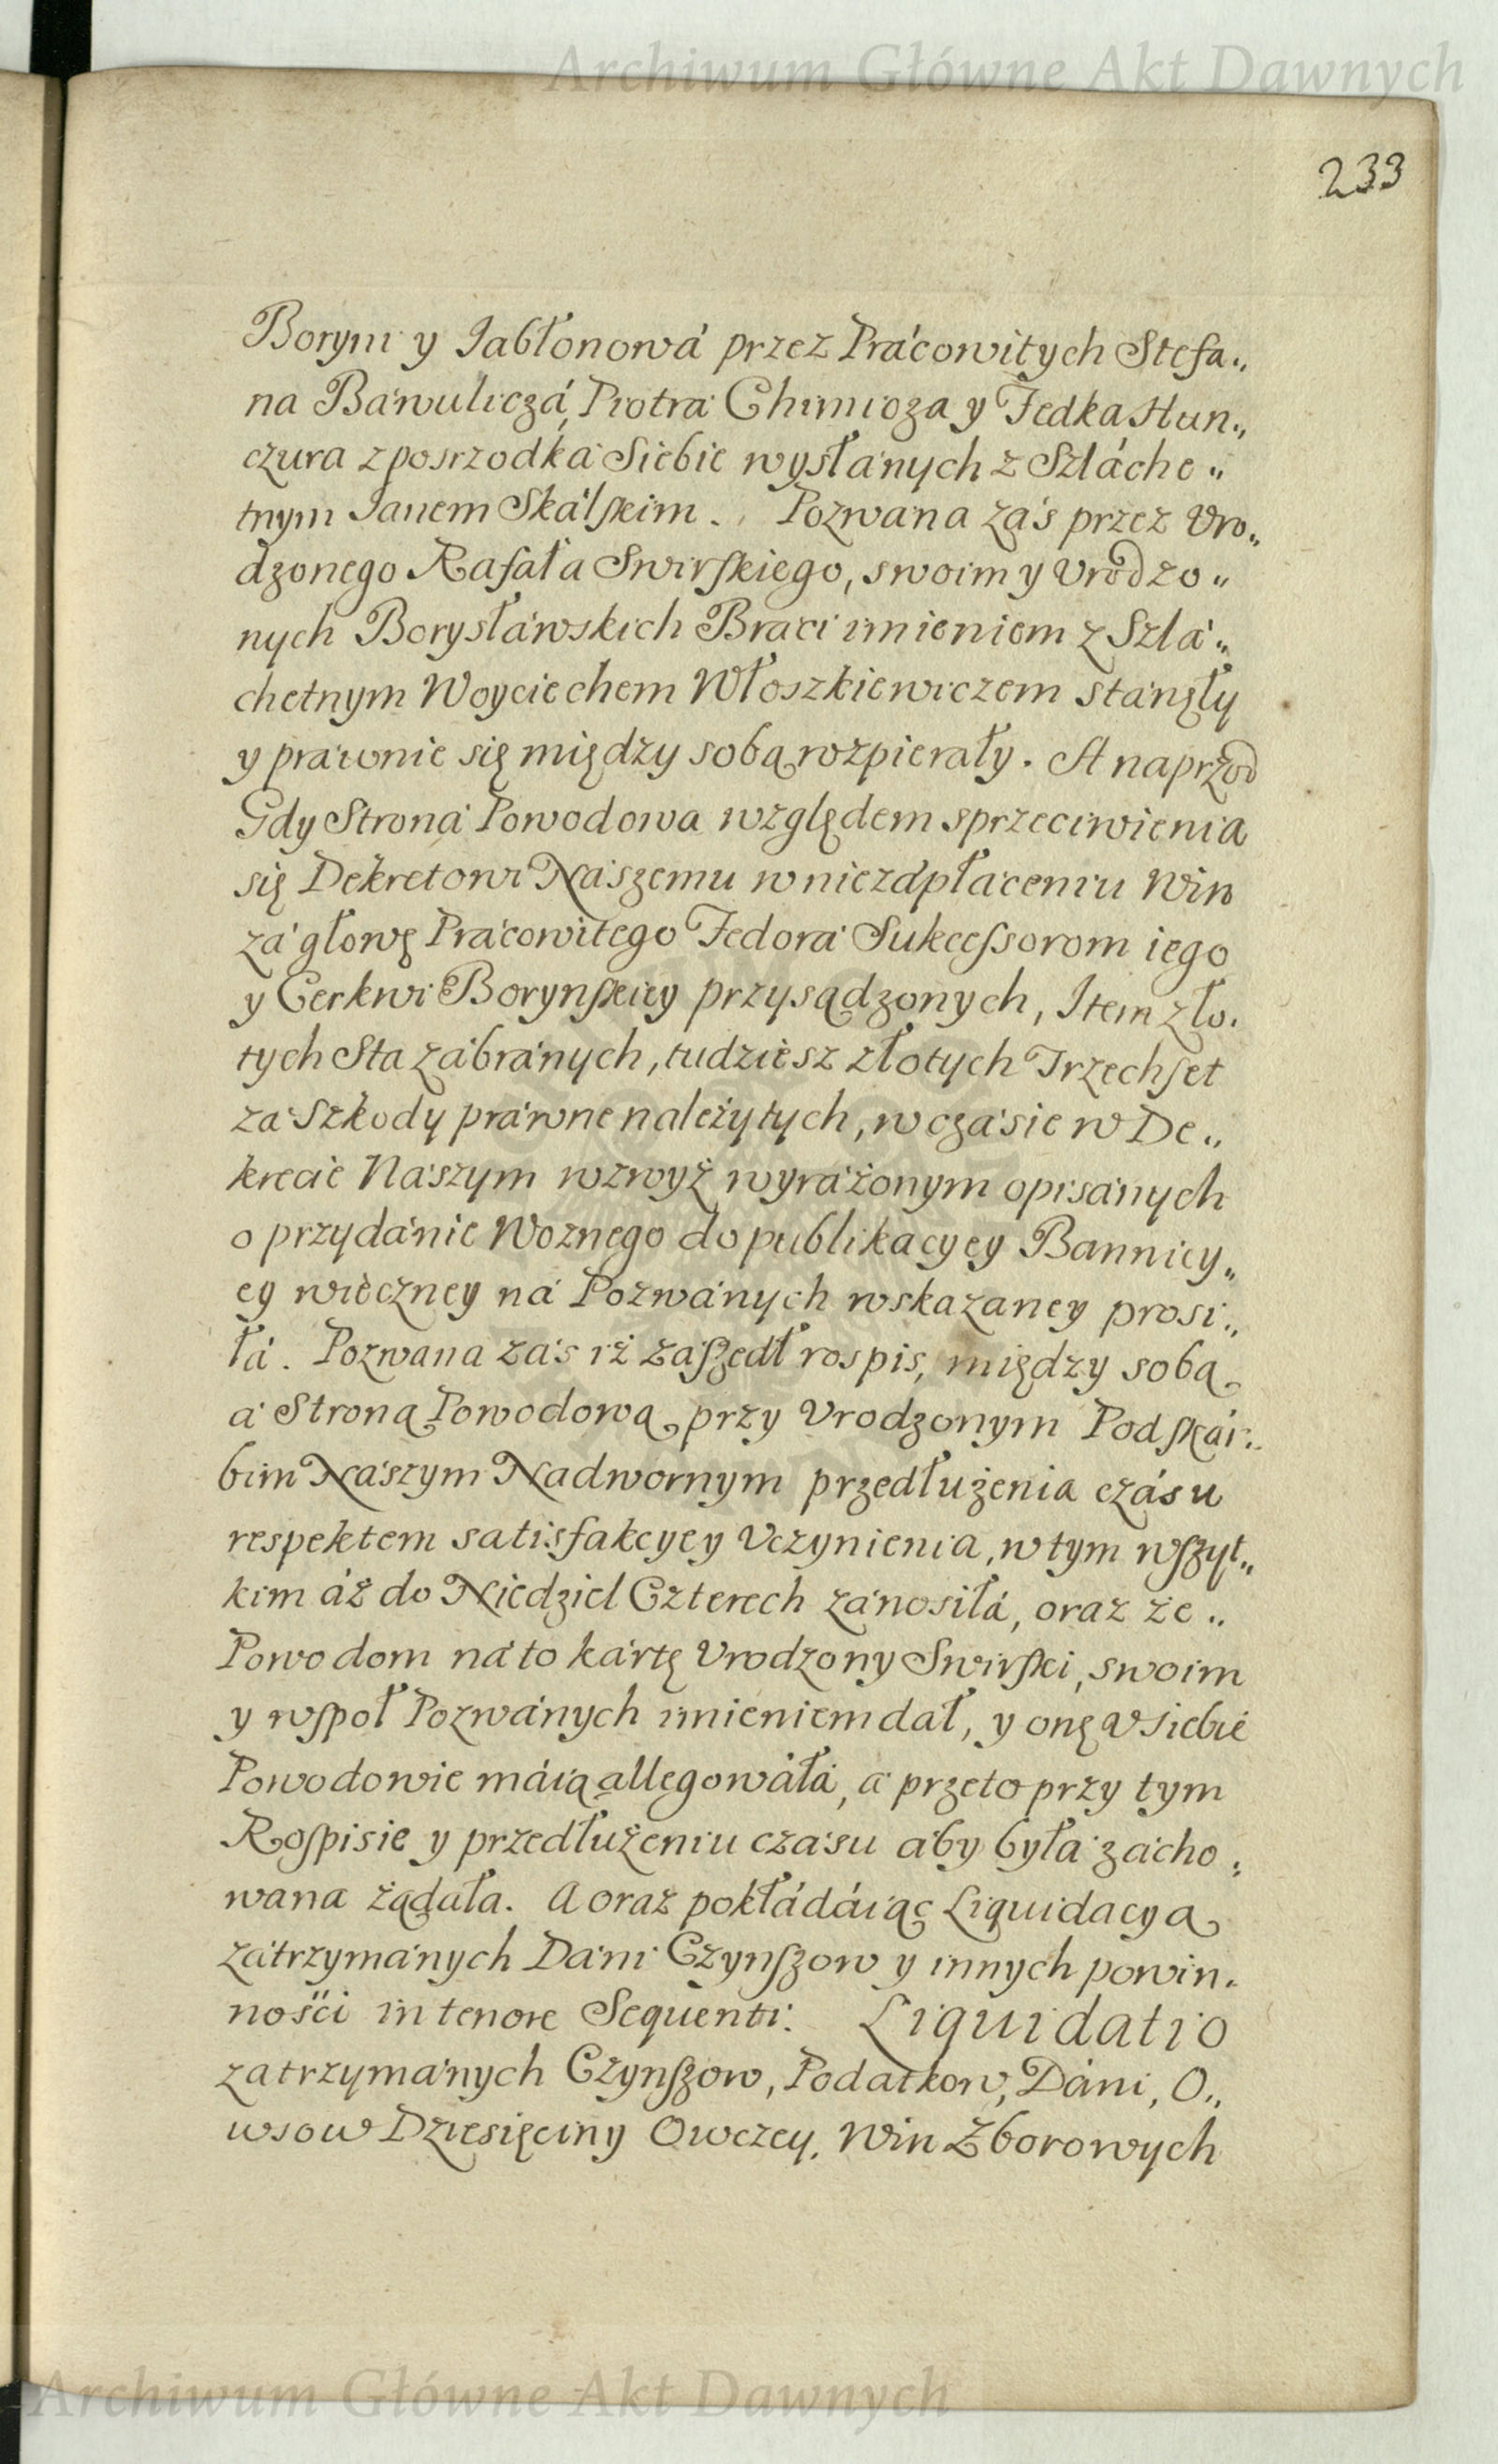 Archiwum Główne Akt Dawnych
233
Boryni y Jabłonowá przez Prácowitych Stefa„
na Báwuliczá, Piotrá Chimioza y Fedka Hun„
czura z posrzodká Siebie wysłánych z Szláche„
tnym Janem Skálſkim. Pozwána záś przez Vro„
dzonego Rafała Swirſkiego, swoim y Vrodzo„
nych Borysłáwskich Braci imieniem z Szlá„
chetnym Woyciechem Włoszkiewiczem stánęły
y práwnie się między sobą rozpierały. A naprzod
Gdy Stroná Powodowa względem sprzeciwienia
się Dekretowi Nászemu w niezápłáceniu Win
zá głowę Prácowitego Fedorá Sukceſsorom iego
y Cerkwi Borynſkiey przysądzonych, Item zło„
tych Sta zábránych, tudziesz złotych Trzechſet
zá Szkody práwne należytych, w czásie w De„
krecie Nászym wzwyż wyráżonym opisánych
o przydánie Woznego do publikacyey Bannicy„
ey wieczney ná Pozwánych wskazaney prosi„
łá. Pozwana záś iż zaſzedł rospis, między sobą
á Stroną Powodową przy Vrodzonym Podſkár„
bim Nászym Nadwornym przedłużenia czásu
respektem satisfakcyey Vczynienia, w tym wſzyt„
kim áż do Niedziel Czterech zánosiłá, oraz że„
Powodom ná to kártę Vrodzony Swirſki, swoim
y wſpoł Pozwánych imieniem dał, y onę V siebie
Powodowie máią allegowáłá, á przeto przy tym
Roſpisie y przedłużeniu czásu áby byłá zácho„
wana żądała. A oraz pokłádáiąc Liquidacyą
zátrzymánych Dáni Czynſzow y innych powin„
nośći in tenore Sequenti. Liquidatio
zatrzymánych Czynſzow, Podatkow, Dáni, O„
wsow Dziesięciny Owczey, Win Zborowych
Archiwum Główne Akt Dawnych